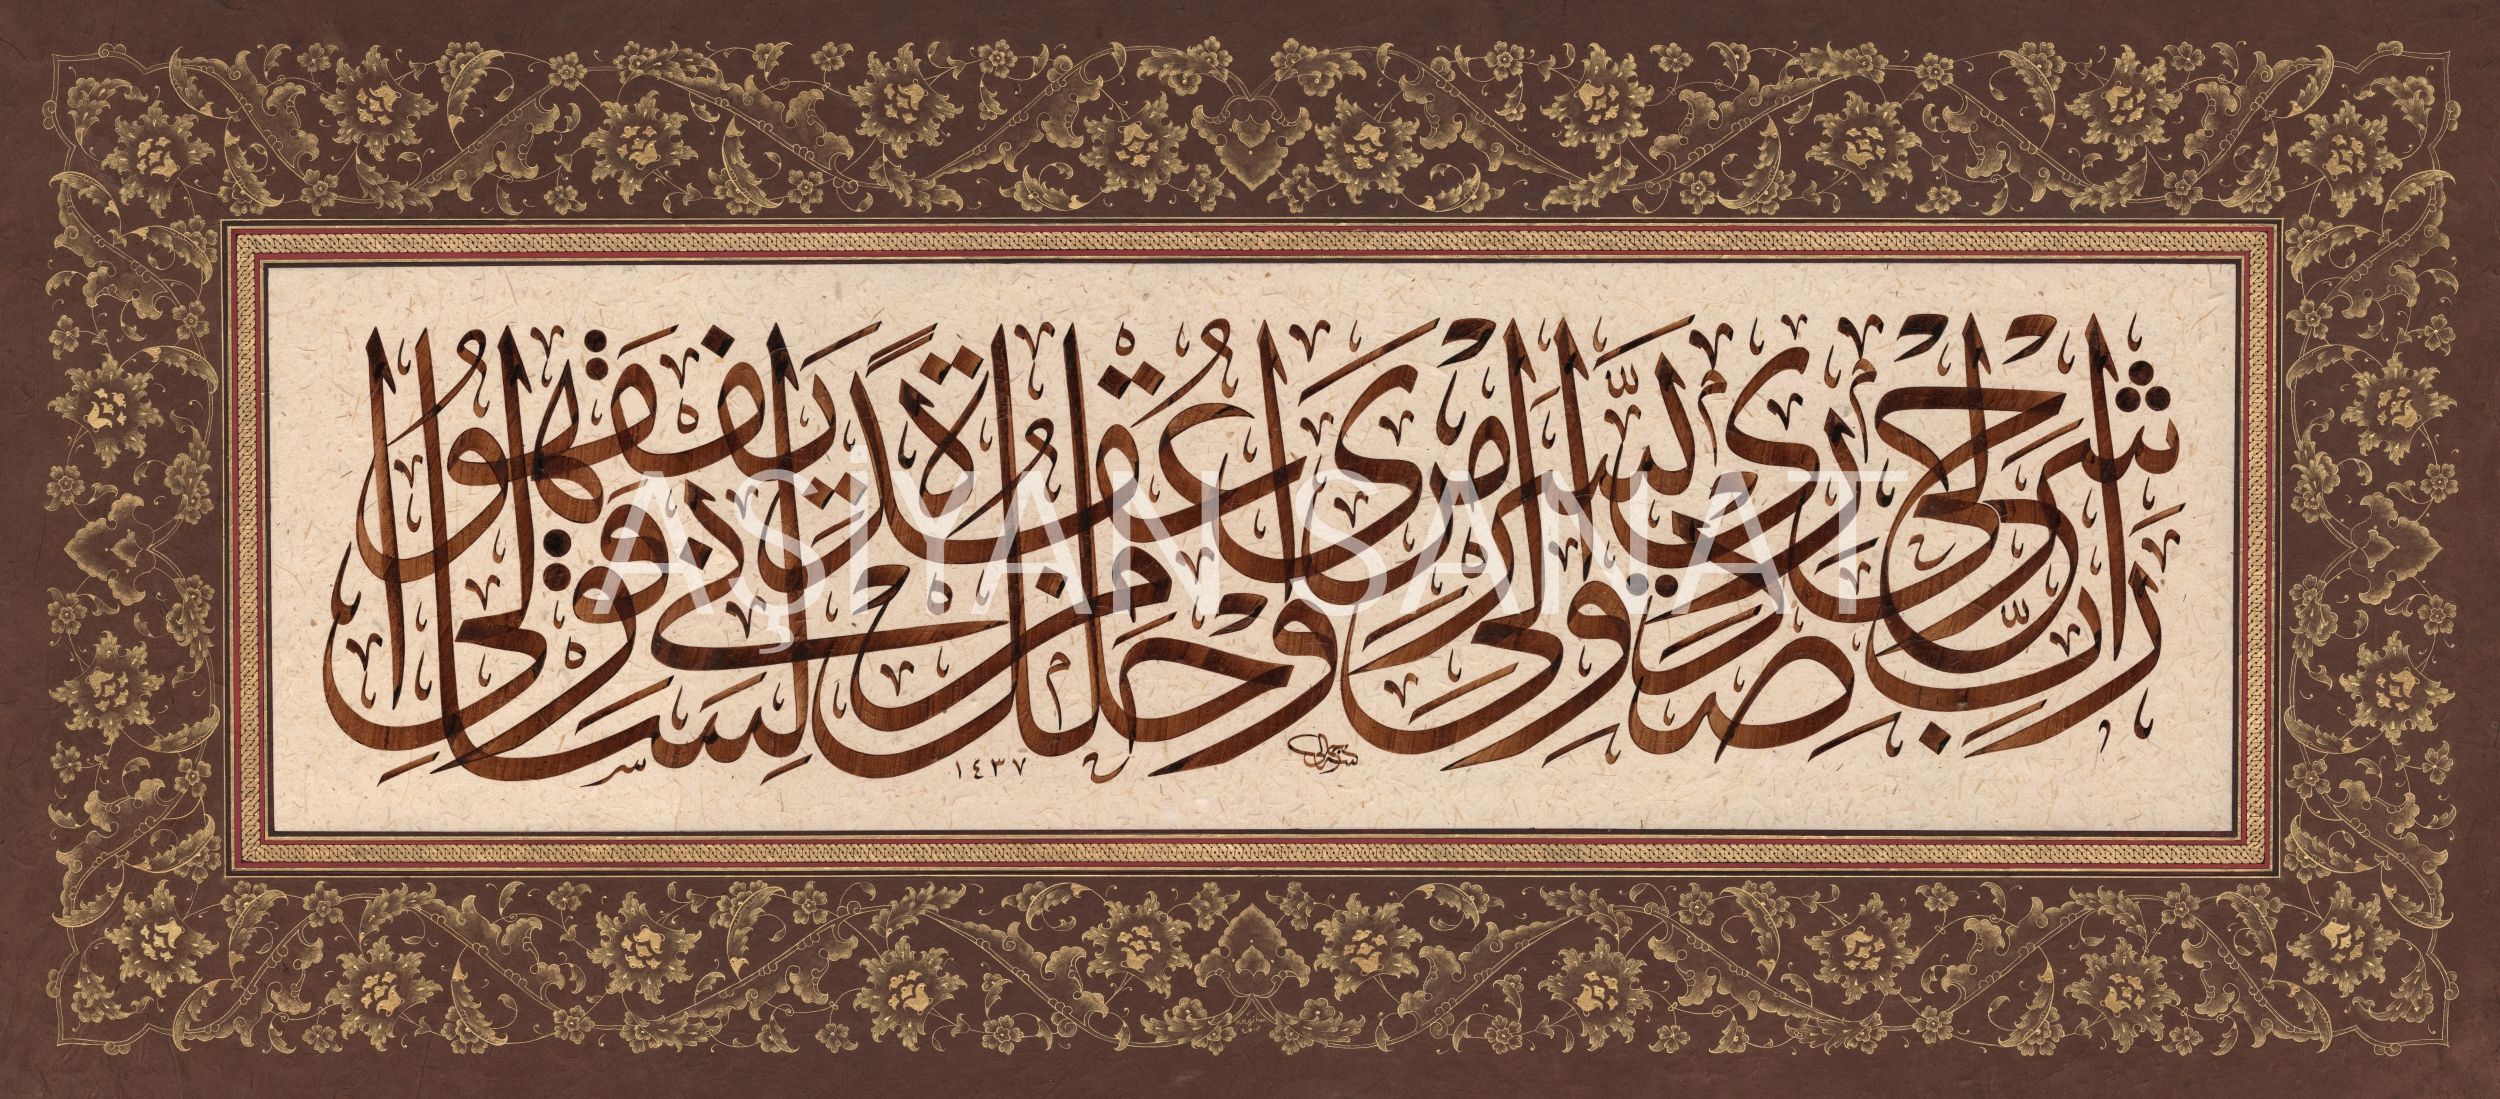 رَبِّ اشْرَحْ لِي صَدْرِي وَيَسِّرْ لِي أَمْرِي وَاحْلُلْ عُقْدَةً مِنْ لِسَانِي يَفْقَهُوا قَوْلِي
١٤٣٧
AŞİYAN SANAT